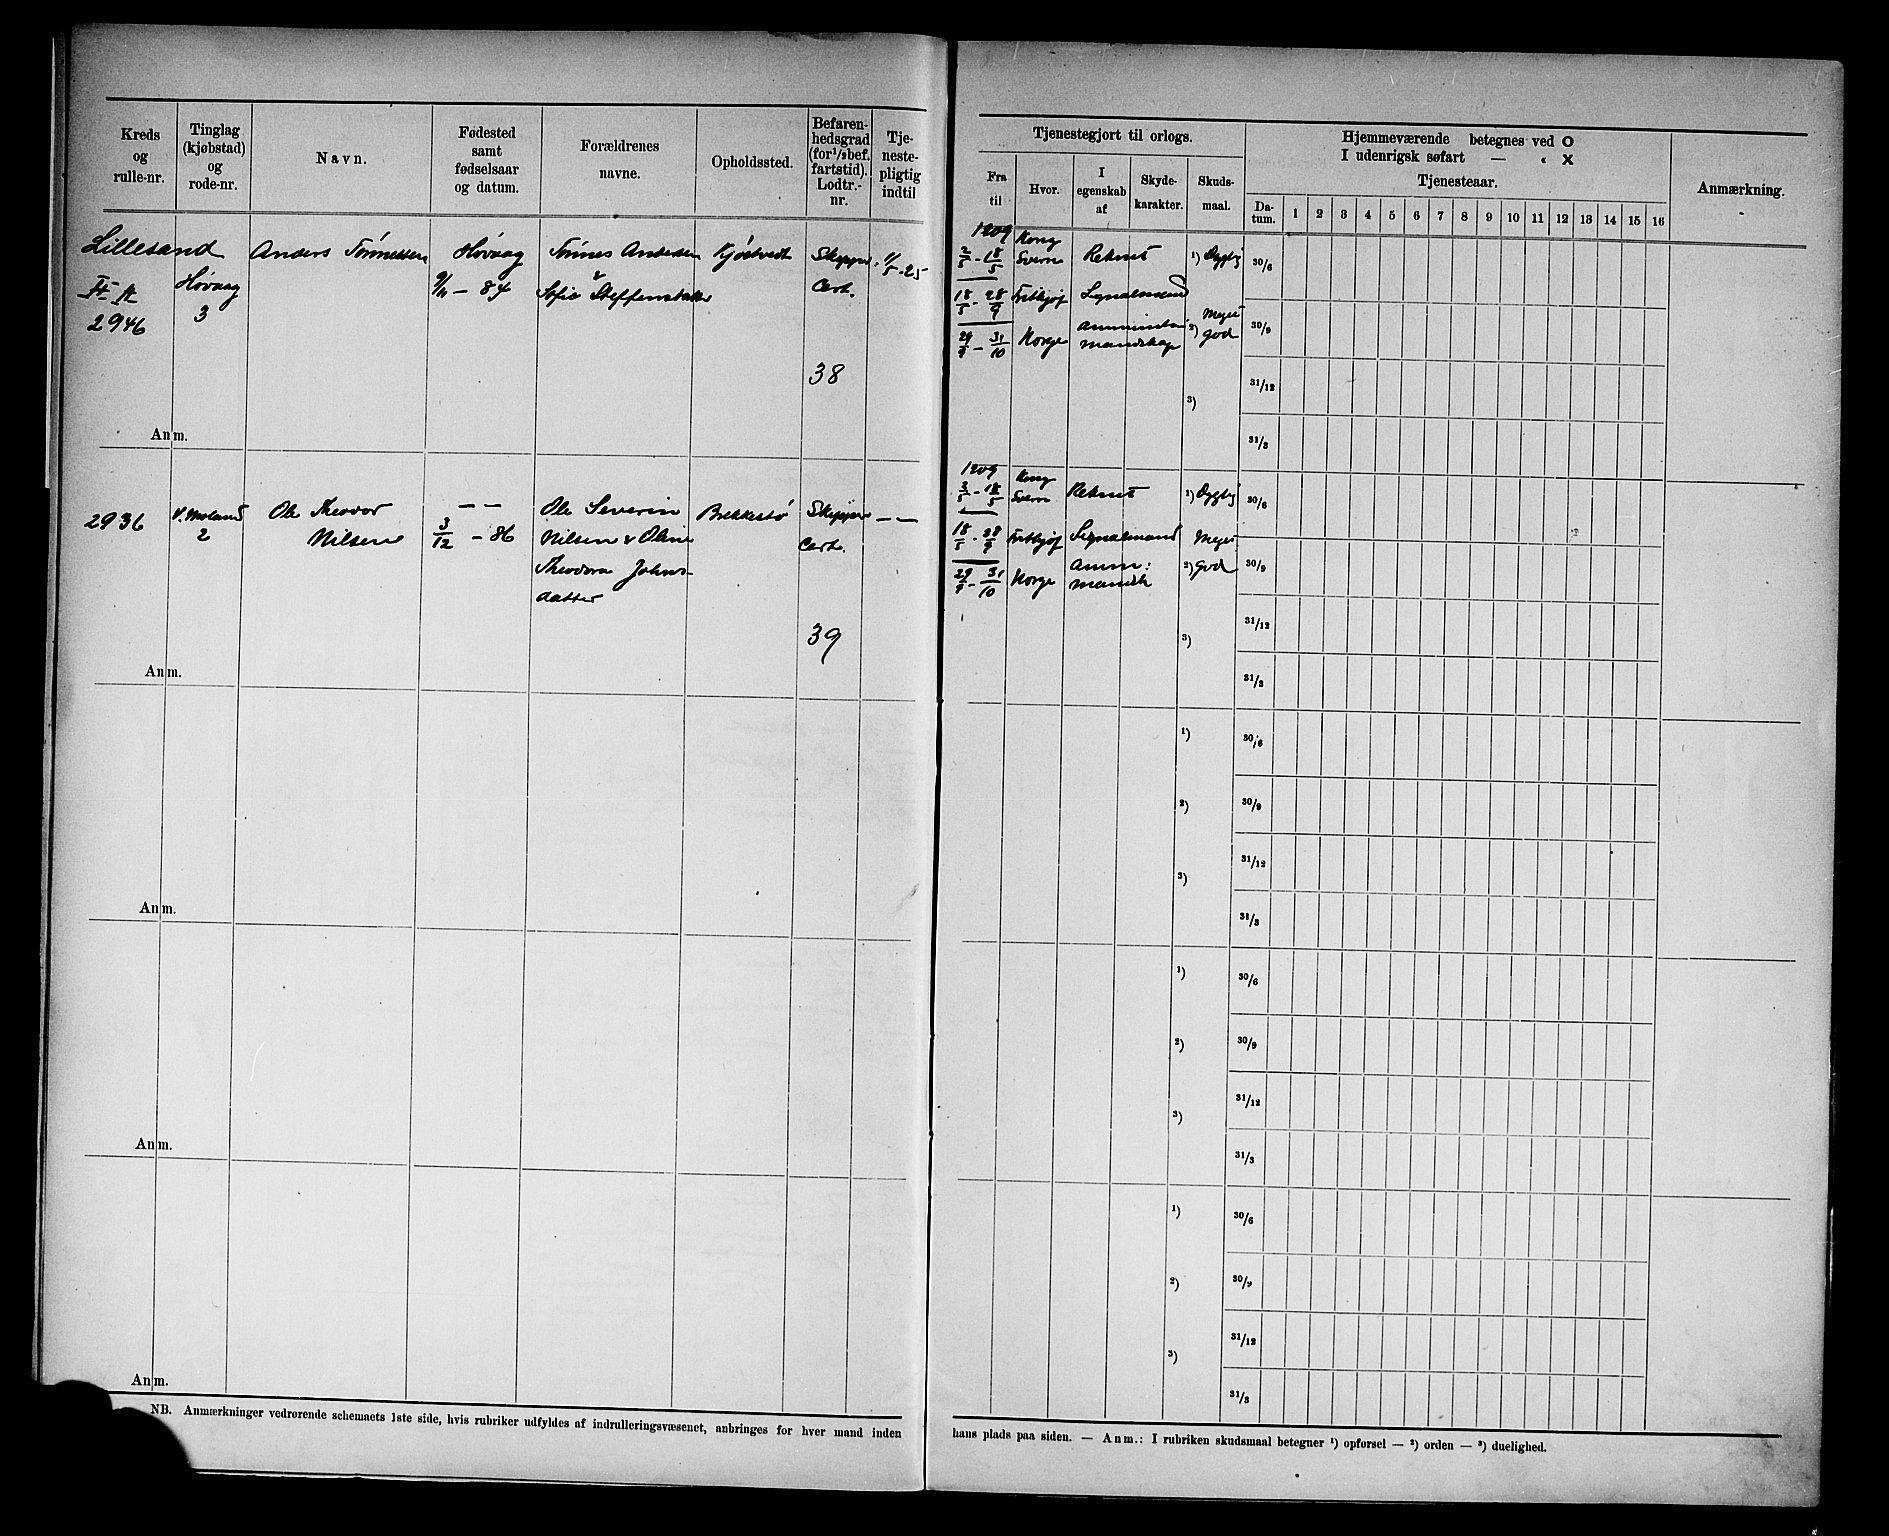 Kreds og rulle-nr.
Tinglag (kjøbstad) og rode-nr.
Navn.
Fødested samt fødselsaar og datum.
Forældrenes navne.
Opholdssted.
Befaren-hedsgrad (for 1/2 bef. fartstid). Lodtr.-nr.
Tje-neste-pligtig indtil
Tjenestegjort til orlogs.
Fra til
Hvor.
I egenskab af
Skyde-karakter.
Skuds-maal.
Hjemmeværende betegnes ved O
I udenrigsk søfart — « X
Tjenesteaar.
Da-tum. 1 2 3 4 5 6 7 8 9 10 11 12 13 14 15 16
Anmærkning.
Lillesand
2946
Høvaag
3
Anders Tønnessen
Høvaag
9/11 - 84
Tønnes Andersen
&
Sofie Steffensdatter
Kjøstvedt
Skipper
Cert.
38
1/5-25
1909
2/5 - 18/5
Kong Sverre
Rekrut
1) Dygtig
18/5 - 28/9
Fritjhjof
Signalmand
Meget
2) god
29/9 - 31/10
Norge
mandskap
3)
30/6
30/9
31/12
31/3
Anm.
2936
V. Moland
2
Ole Theodor
Nilsen
— —
3/12 - 86
Ole Severin
Nilsen & Oline
Theodora Johns-
datter
Brekkestø
Skipper
Cert.
39
— —
1909
3/5 - 18/5
Kong Sverre
Rekrut
1) Dygtig
18/5 - 28/9
Fritjhjof
Signalmand
Meget
2) god
29/9 - 31/10
Norge
Amm:
mandsk
3)
30/6
30/9
31/12
31/3
Anm.
1)
2)
3)
30/6
30/9
31/12
31/3
Anm.
1)
2)
3)
30/6
30/9
31/12
31/3
Anm.
1)
2)
3)
30/6
30/9
31/12
31/3
Anm.
NB. Anmærkninger vedrørende schemaets 1ste side, hvis rubriker udfyldes af indrulleringsvæsenet, anbringes for hver mand inden
hans plads paa siden. — Anm.: I rubriken skudsmaal betegner ¹) opførsel — ²) orden — ³) duelighed.